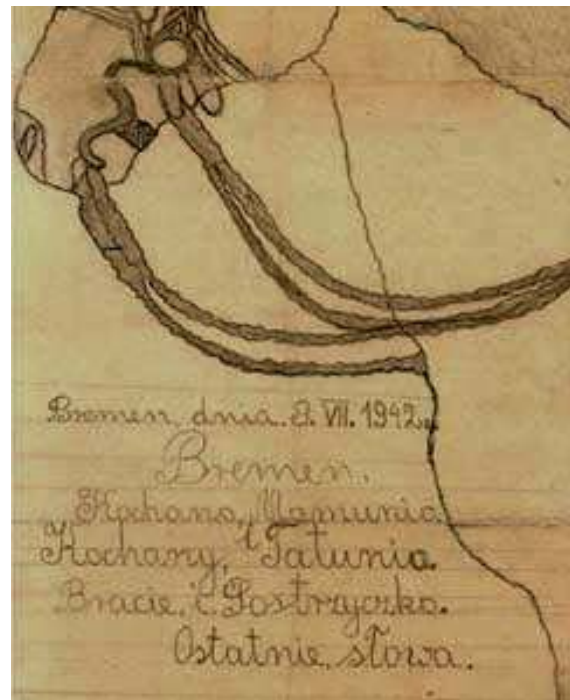 Bremen, dnia. 8. VII. 1942.
Bremen.
Kochano, Mamunio.
Kochany, i Tatunio.
Bracie, i Sostrzyczko.
Ostatnie. słowa.